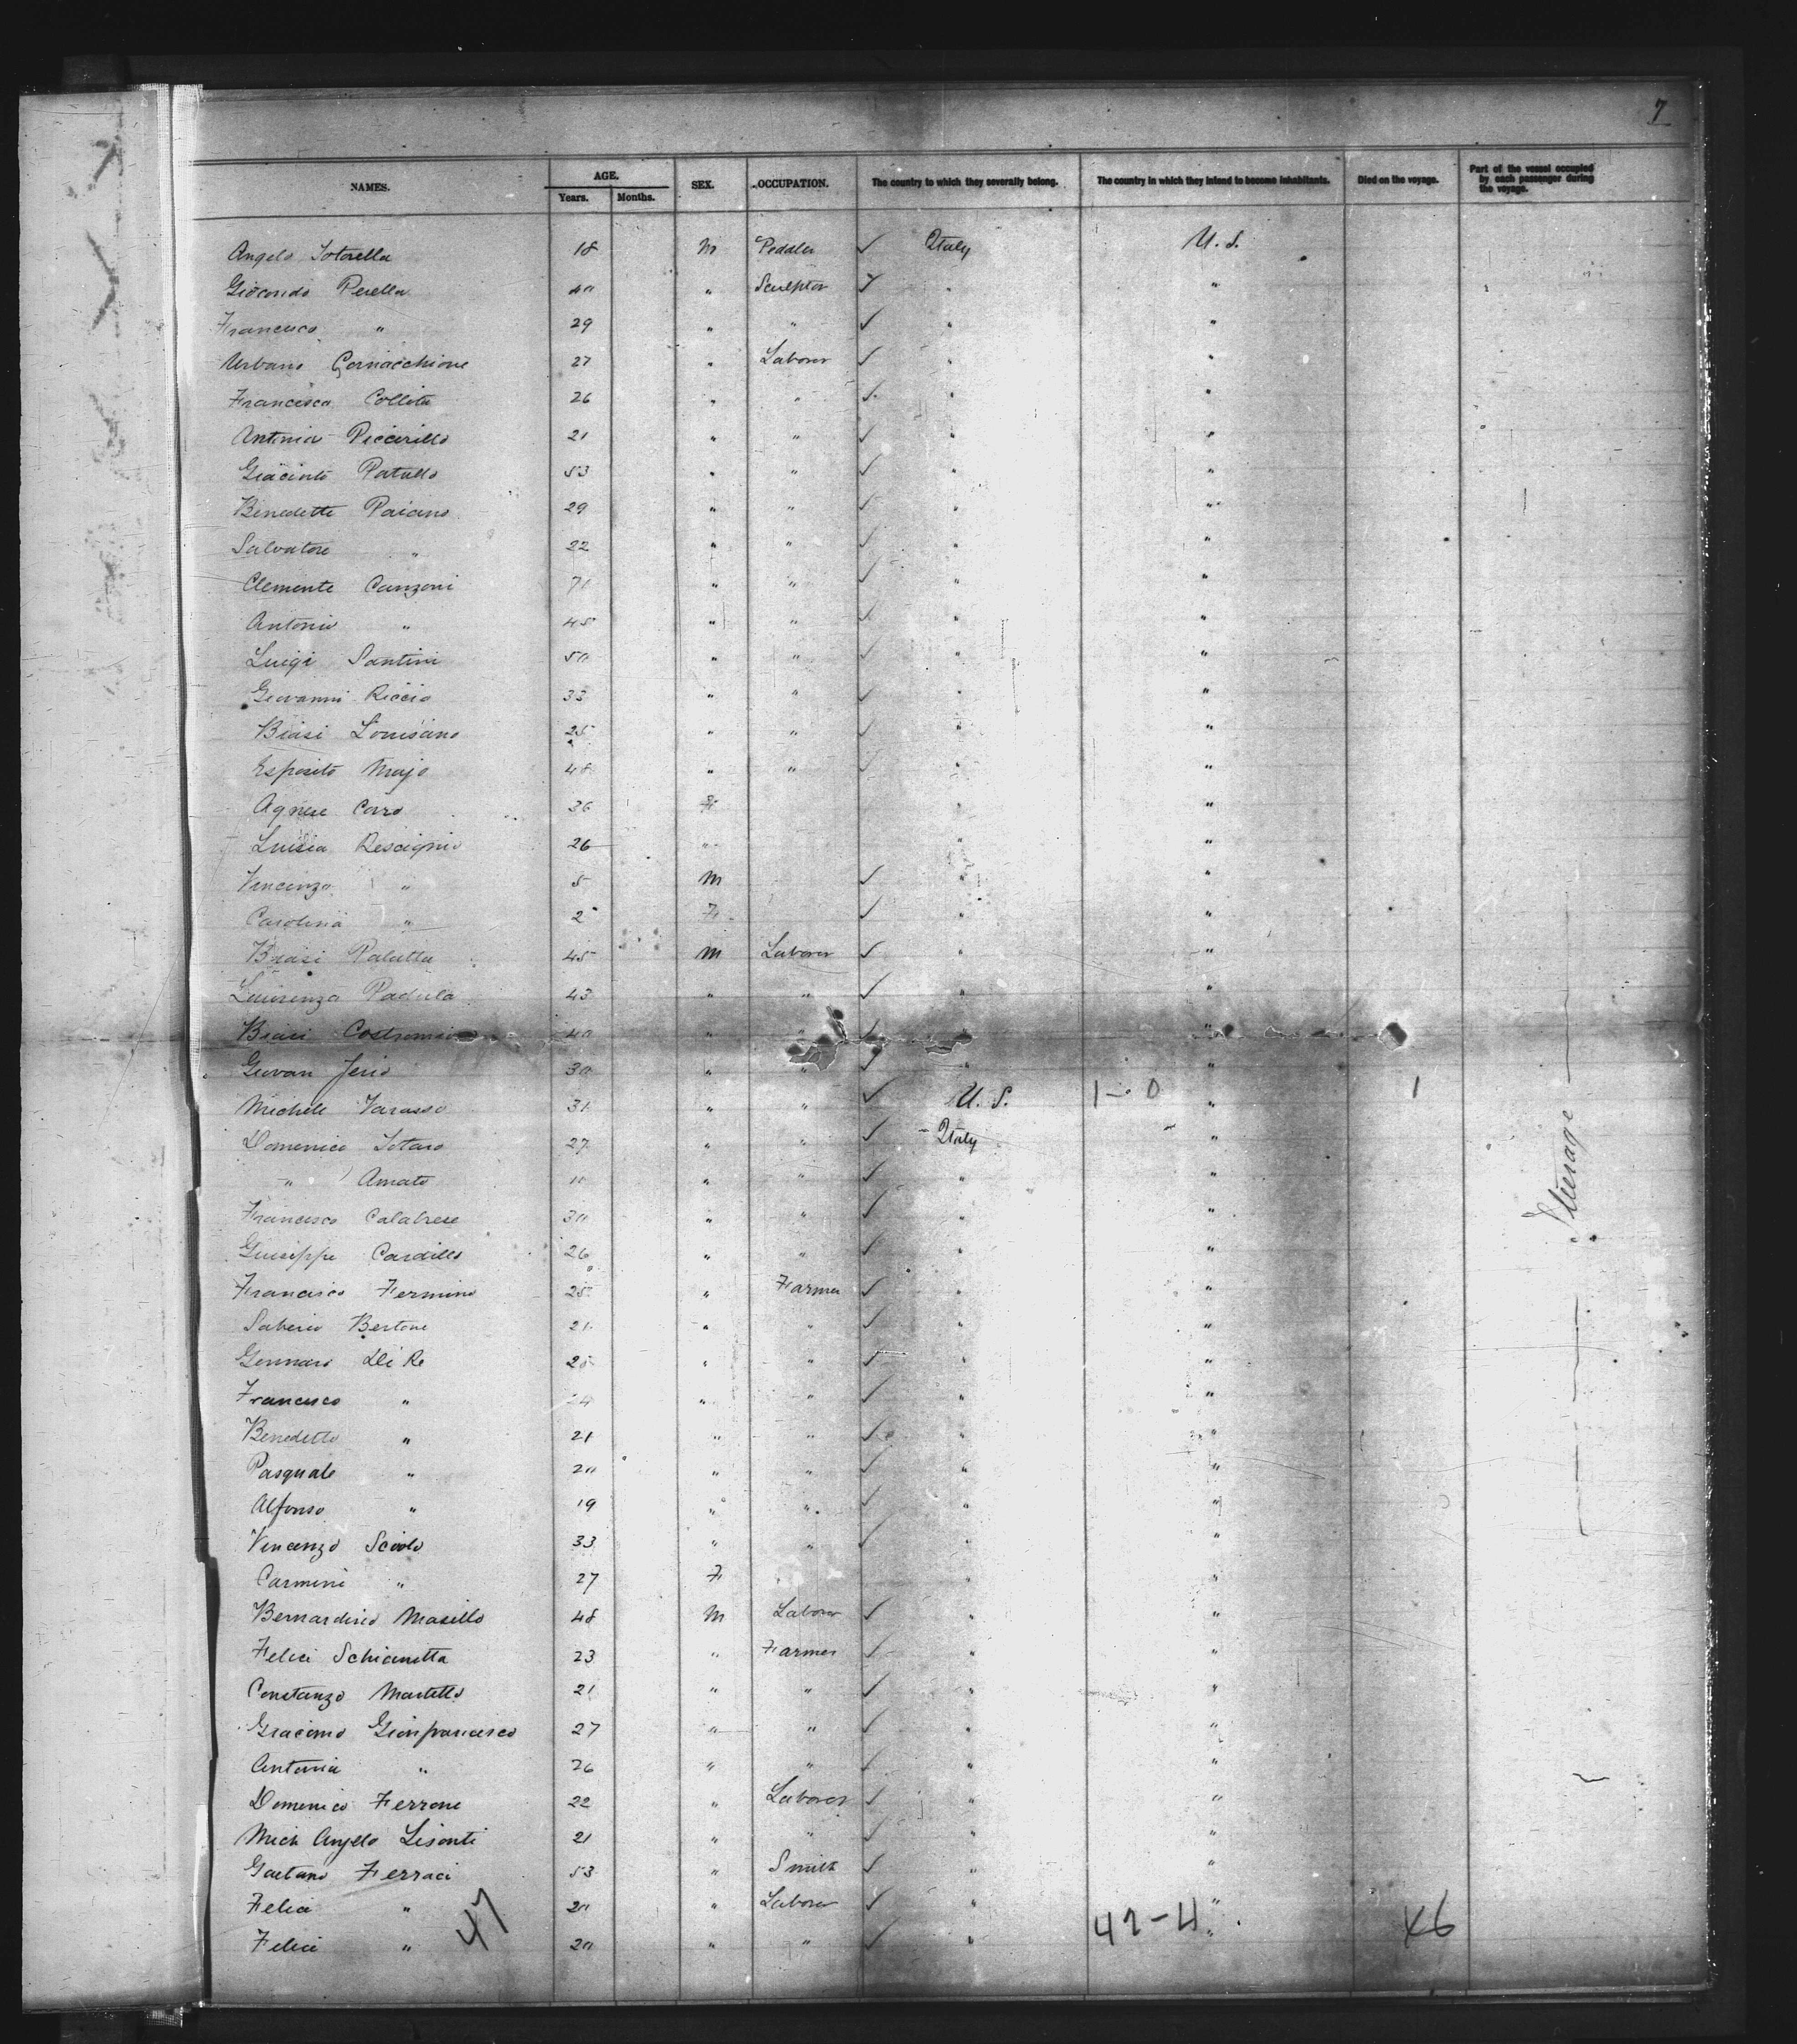 7
NAMES. AGE. SEX. OCCUPATION. The country to which they severally belong. The country in which they intend to become inhabitants. Died on the voyage. Part of the vessel occupied by each passenger during the voyage.
Years. Months.
Angelo Sotorella 18 M Peddler ✓ Italy U. S.
Giocondo Perella 40 " Sculptor ✓ " "
Francesco " 29 " " ✓ " "
Urbano Cornacchione 27 " Laborer ✓ " "
Francesco Colleta 26 " " ✓ " "
Antonio Piccirillo 21 " " ✓ " "
Giacinto Patullo 53 " " ✓ " "
Benedetto Paiano 29 " " ✓ " "
Salvatore " 22 " " ✓ " "
Clemente Canzoni 71 " " ✓ " "
Antonio " 45 " " ✓ " "
Luigi Santini 50 " " ✓ " "
Giovanni Riccio 33 " " ✓ " "
Biasi Lomsano 25 " " ✓ " "
Esposito Majo 48 " " ✓ " "
Agnese Corro 36 F " "
Luisia Rescignio 26 " " "
Vincenzo " 5 M ✓ " "
Carolina " 2 F ✓ " "
Biasi Palatta 45 M Laborer ✓ " "
Laurenzo Padula 43 " " ✓ " "
Biasi 40 " " ✓ " "
Giovan Jerio 30 " " ✓ " "
Michele Varasso 31 " " ✓ U. S. 1-0 " 1
Domenico Sotaro 27 " " ✓ Italy "
" Amato " " ✓ " "
Francesco Calabrese 30 " " ✓ " "
Guiseppe Cardillo 26 " " ✓ " "
Francisco Fermino 25 " Farmer ✓ " "
Saberio Bertone 21 " " ✓ " "
Gennaro Di Re 25 " " ✓ " "
Francesco " 24 " " ✓ " "
Benedetto " 21 " " ✓ " "
Pasquale " 20 " " ✓ " "
Alfonso " 19 " " ✓ " "
Vincenzo Sciolo 33 " " ✓ " "
Carmine " 27 F " "
Bernardino Masillo 48 M Laborer ✓ " "
Felici Schianetta 23 " Farmer ✓ " "
Constanzo Martello 21 " " ✓ " "
Giacomo Gionfrancesco 27 " " ✓ " "
Antonia " 26 " " ✓ " "
Domenico Ferrone 22 " Laborer ✓ " "
Mich Angelo Lisonti 21 " " ✓ " "
Gaetano Ferraci 53 " Smith ✓ " "
Felici " 20 " Laborer ✓ " "
Felici " 20 " " ✓ " "
47 42-4 46
Steerage